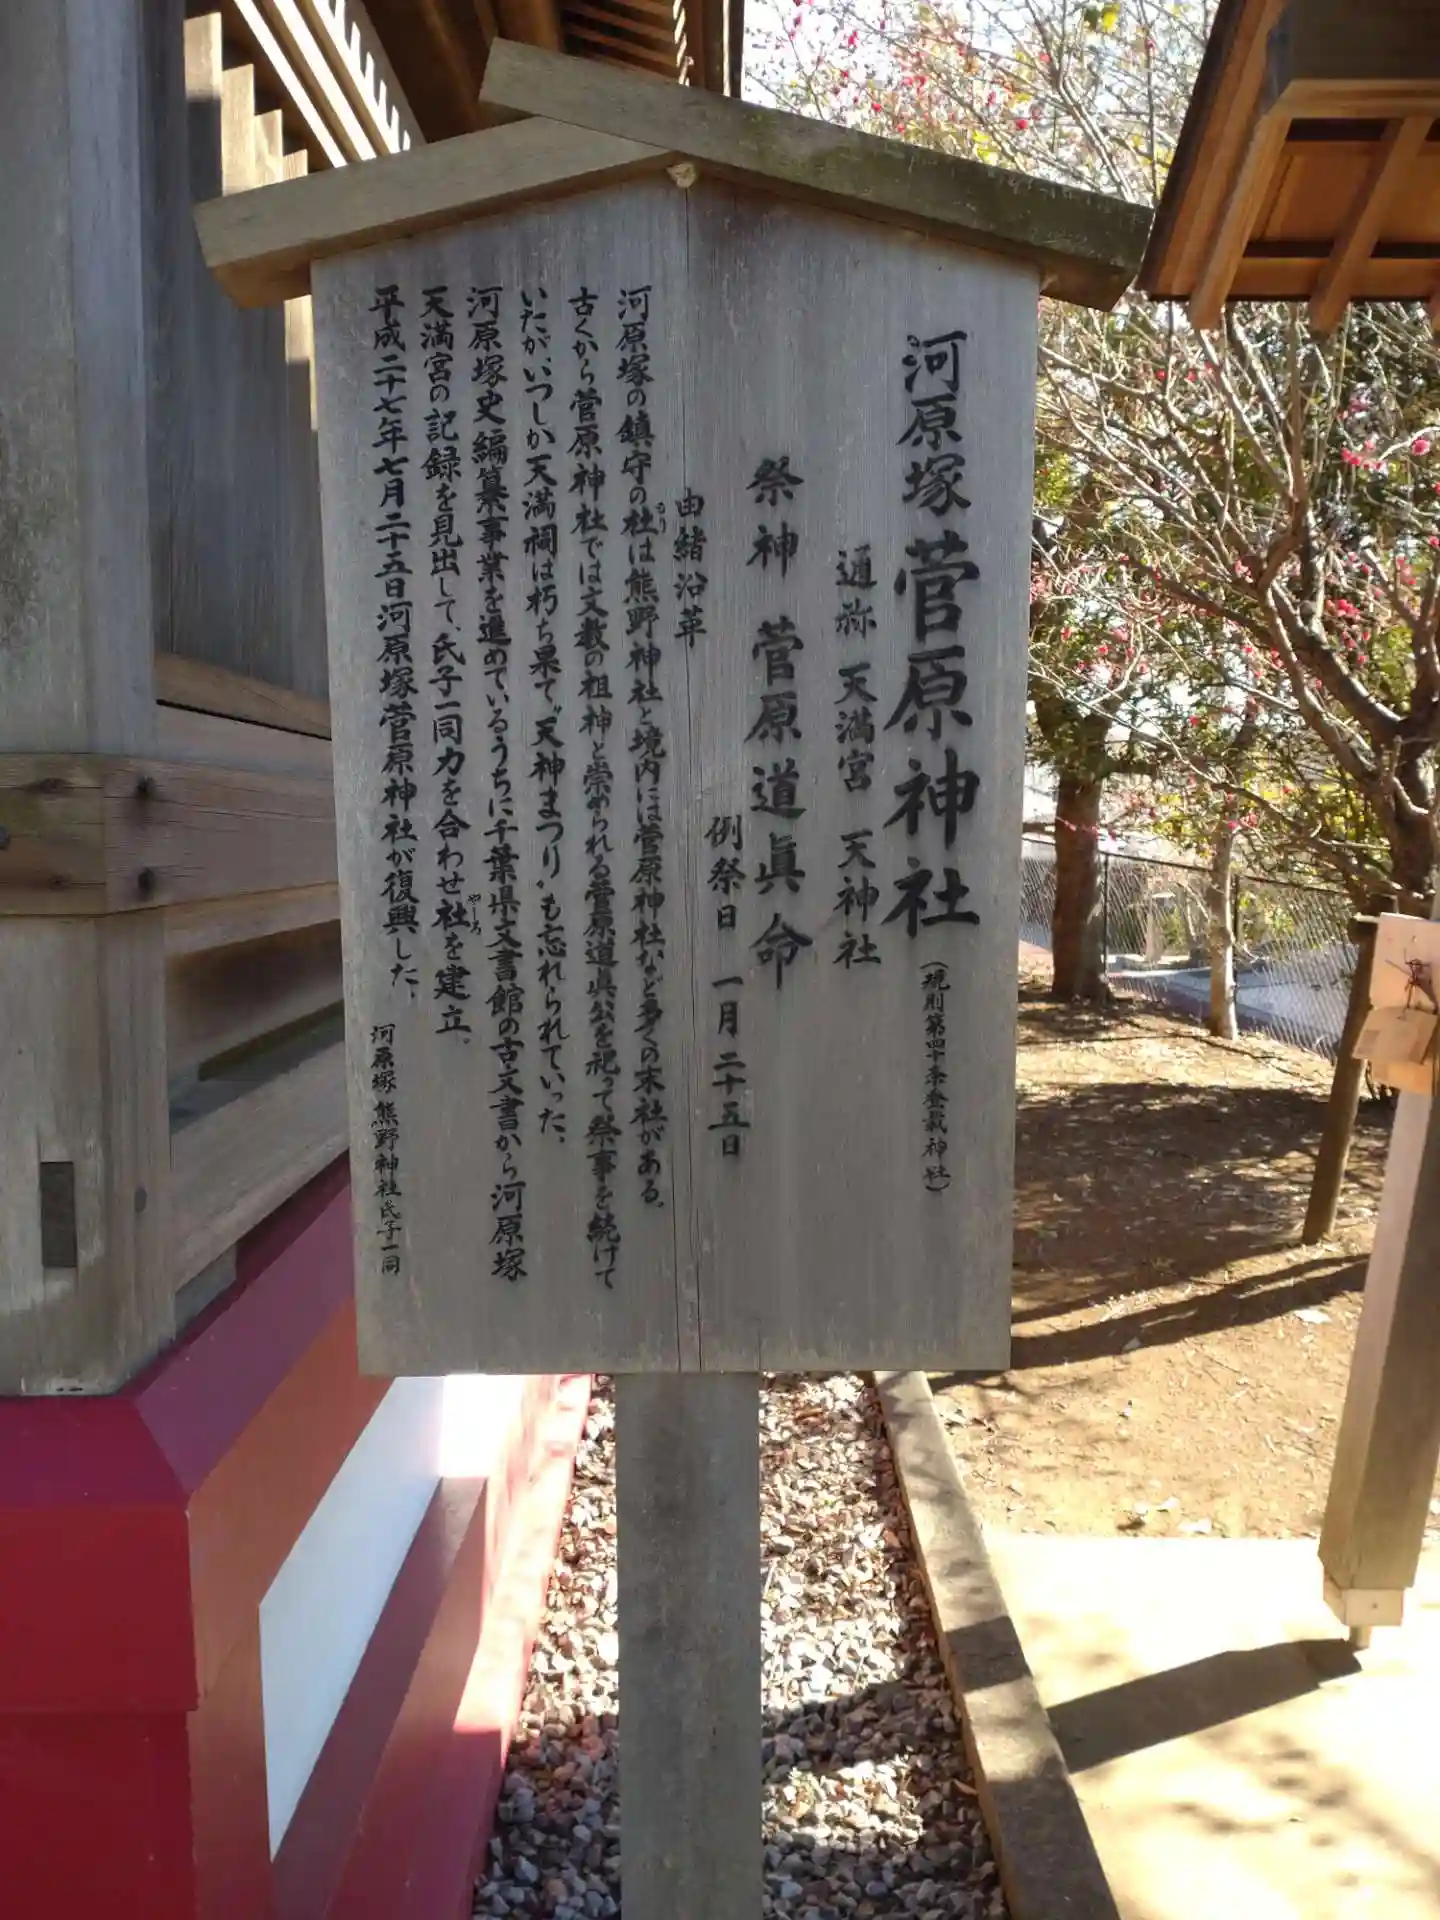 河原塚菅原神社(規則第四十条登載神社)
通称 天満宮 天神社
祭神 菅原道眞命
例祭日 一月二十五日
由緒沿革
河原塚の鎮守の社(もり)は熊野神社と境内には菅原神社など多くの末社がある。
古くから菅原神社では文教の祖神と崇められる菅原道眞公を祀って祭事を続けて
いたが、いつしか天満祠は朽ち果て"天神まつり"も忘れられていった。
河原塚史編纂事業を進めているうちに千葉県文書館の古文書から河原塚
天満宮の記録を見出して、氏子一同力を合わせ社(やしろ)を建立。
平成二十七年七月二十五日河原塚菅原神社が復興した。
河原塚熊野神社氏子一同